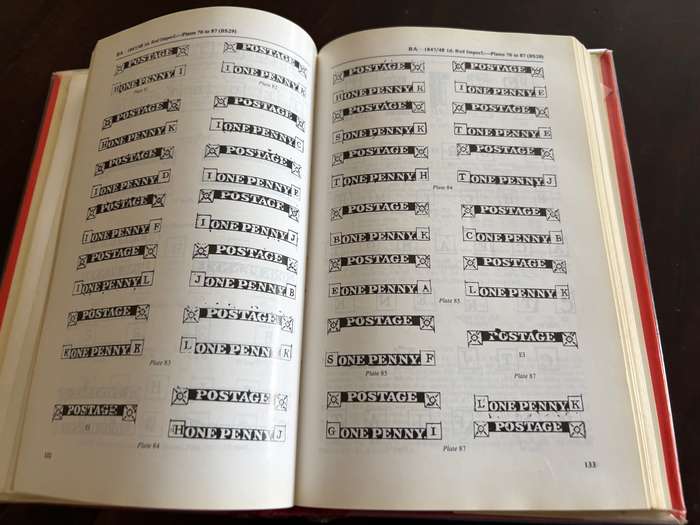 BA 1847/48 1d. Red Imperf.—Plates 76 to 87 (BS29)
POSTAGE POSTAGE
ONE PENNY I I ONE PENNY E
Plate 82
POSTAGE POSTAGE
ONE PENNY K I ONE PENNY C
POSTAGE POSTAGE
I ONE PENNY D I ONE PENNY
POSTAGE POSTAGE
I ONE PENNY F I ONE PENNY J
POSTAGE POSTAGE
ONE PENNY L J ONE PENNY B
POSTAGE POSTAGE
K ONE PENNY K L ONE PENNY K
Plate 83
POSTAGE POSTAGE
H ONE PENNY J
Plate 84
BA 1847/48 1d. Red Imperf.—Plates 76 to 87 (BS29)
POSTAGE POSTAGE
H ONE PENNY K I ONE PENNY E
POSTAGE POSTAGE
S ONE PENNY K T ONE PENNY E
POSTAGE POSTAGE
T ONE PENNY H T ONE PENNY J
Plate 84
POSTAGE POSTAGE
B ONE PENNY K C ONE PENNY B
POSTAGE POSTAGE
E ONE PENNY A L ONE PENNY K
Plate 85
POSTAGE POSTAGE
S ONE PENNY F EI
Plate 85 Plate 87
POSTAGE L ONE PENNY K
G ONE PENNY I POSTAGE
Plate 87
133